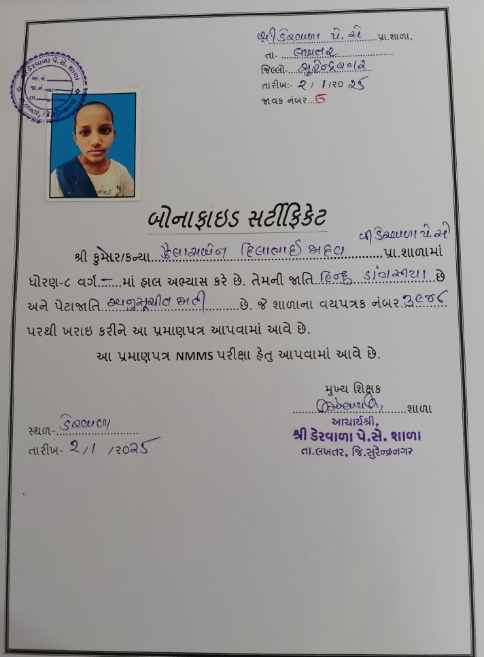 શ્રી ડેરવાળા પે. સે. પ્રા.શાળા,
તા- લખતર
જિલ્લો- સુરેન્દ્રનગર
તારીખ:- ૨/૧/૨૦૨૫
જાવક નંબર...
શ્રી ડેરવાળા પે.સે. શાળા
બોનાફાઇડ સર્ટીફિકેટ
શ્રી ડેરવાળા પે સે
શ્રી કુમાર/કન્યા પ્રા.શાળામાં
ધોરણ-૮ વર્ગ.–. માં હાલ અભ્યાસ કરે છે. તેમની જાતિ હિન્દુ ડાંગસીયા છે
અને પેટાજાતિ અનુસૂચિત જાતી છે. જે શાળાના વયપત્રક નંબર
પરથી ખરાઇ કરીને આ પ્રમાણપત્ર આપવામાં આવે છે.
આ પ્રમાણપત્ર NMMS પરીક્ષા હેતુ આપવામાં આવે છે.
મુખ્ય શિક્ષક
શાળા
આચાર્યશ્રી,
શ્રી ડેરવાળા પે.સે. શાળા
તા.લખતર, જિ.સુરેન્દ્રનગર
સ્થળ- ડેરવાળા
તારીખ- ૨/૧/૨૦૨૫